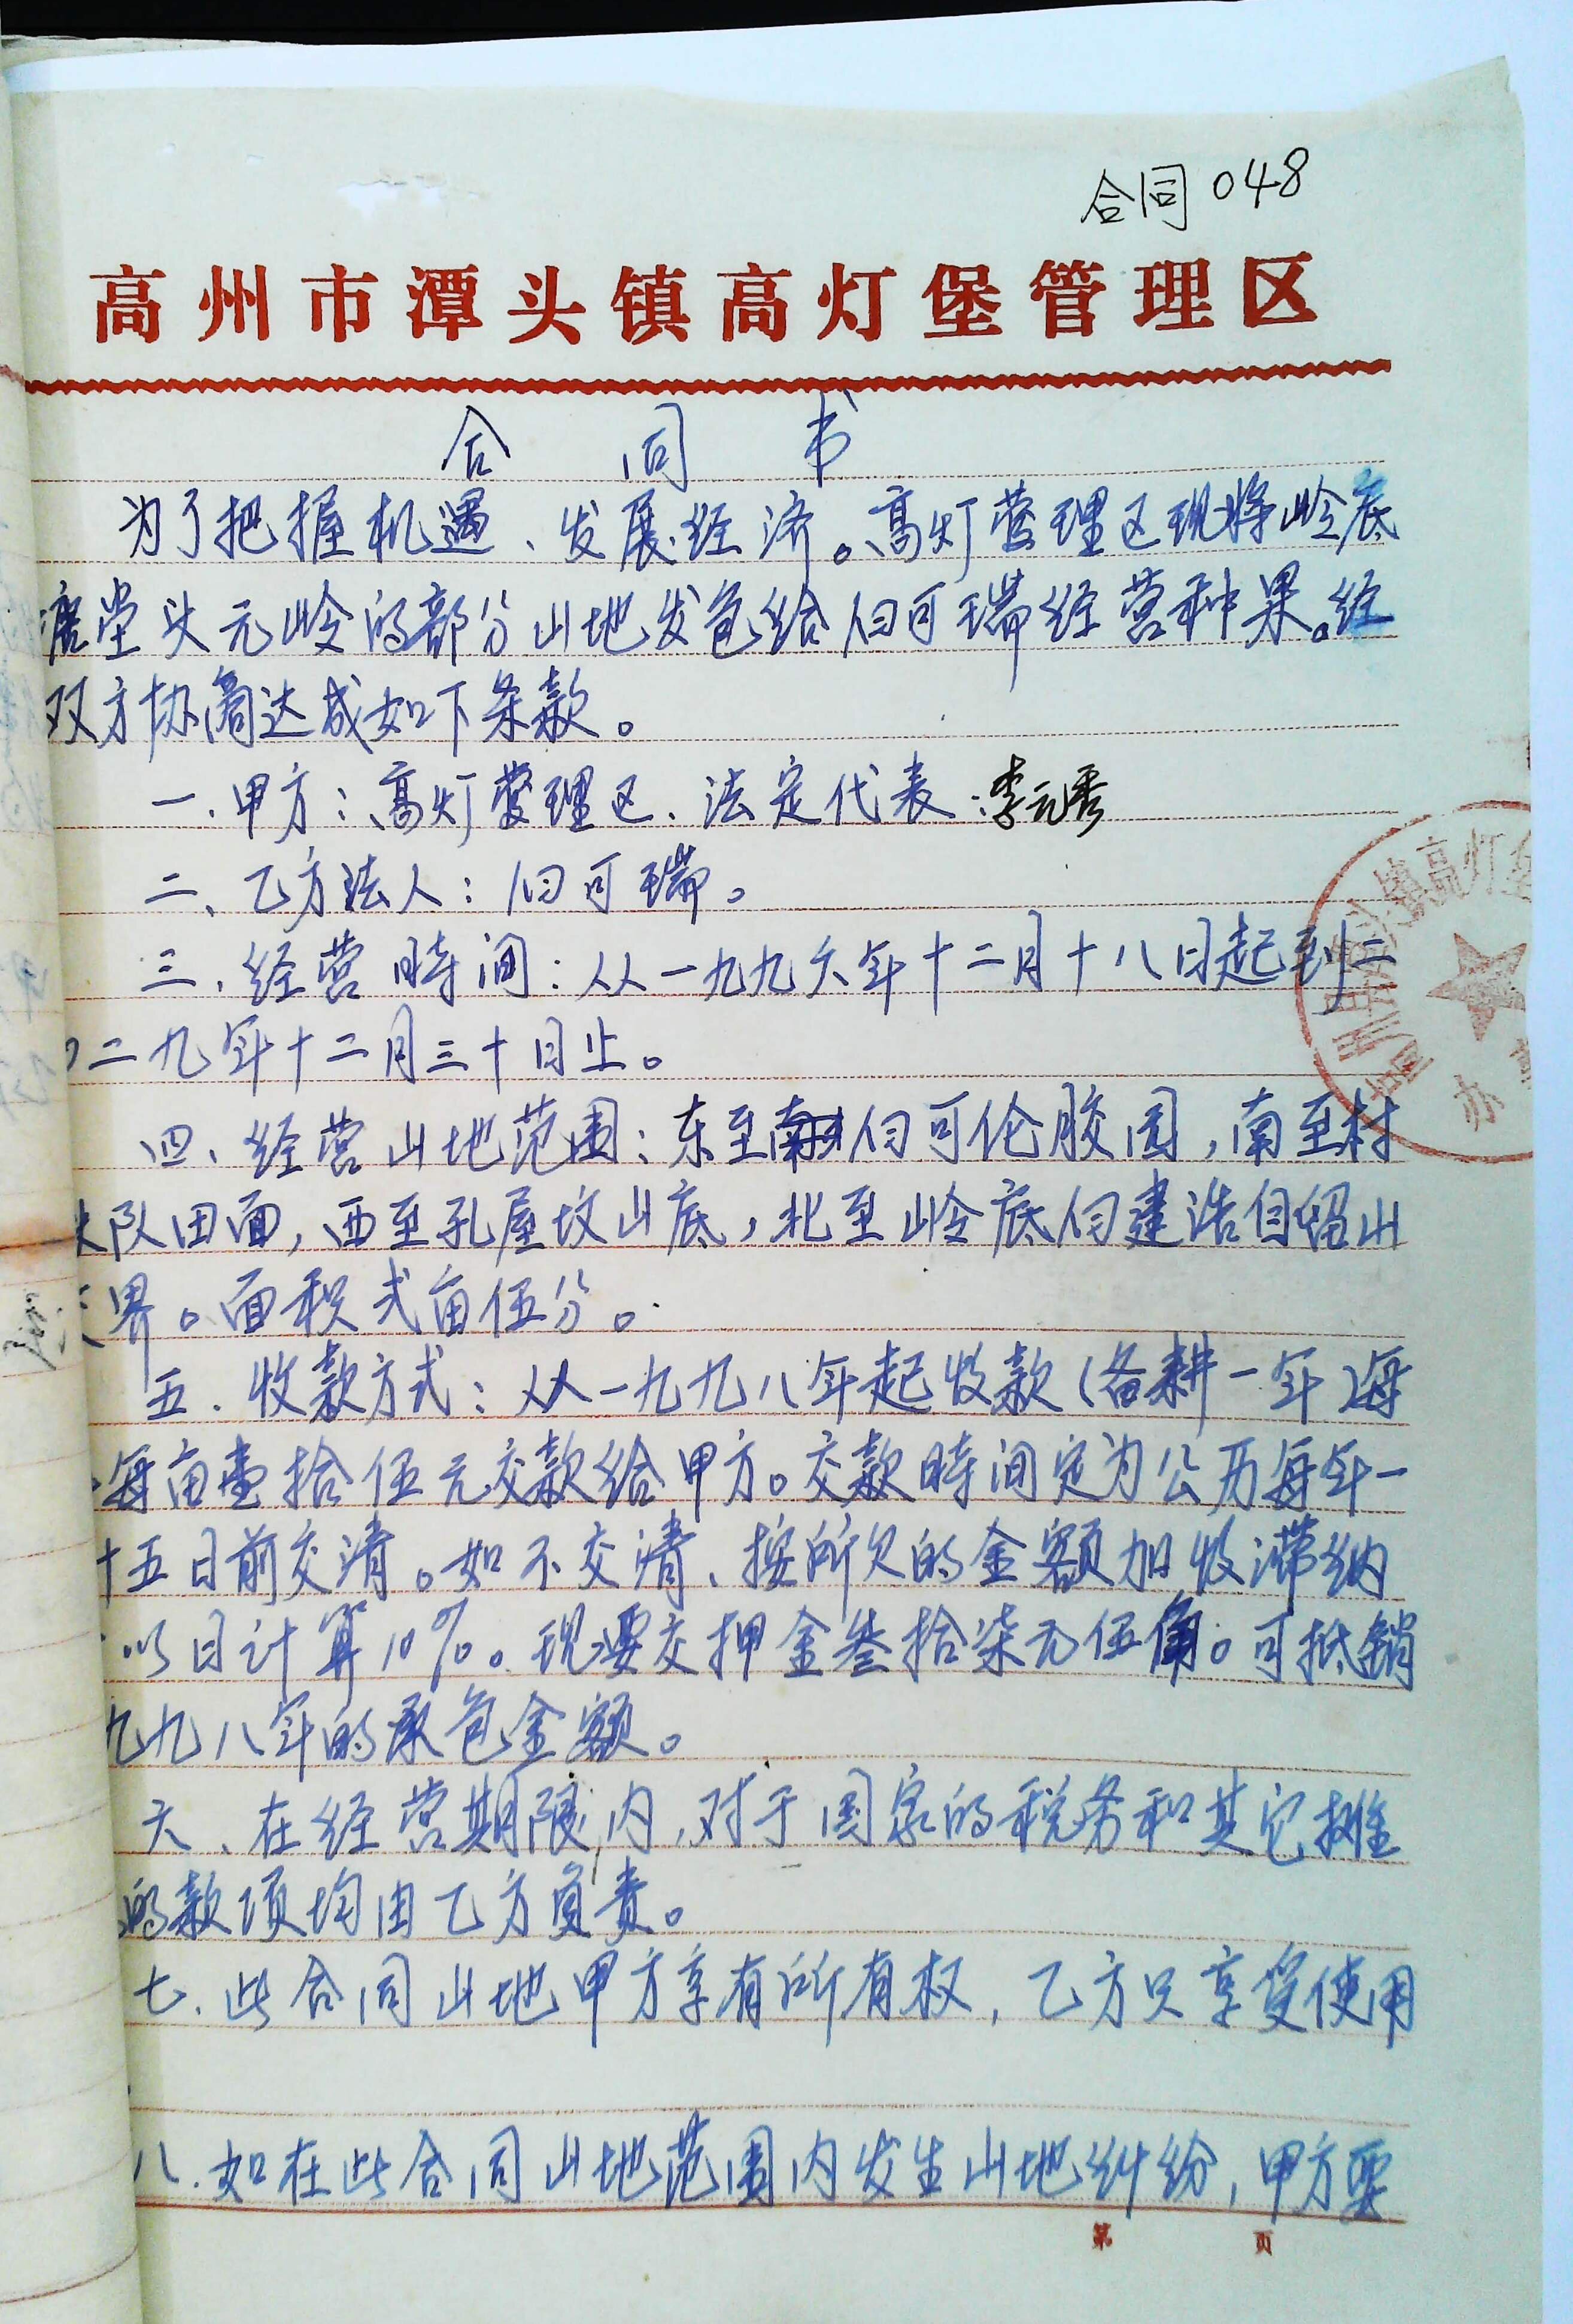 合同048
高州市潭头镇高灯堡管理区
合同书
为了把握机遇、发展经济。高灯管理区现将岭底
塘坣头元岭的部分山地发包给何可瑞经营种果。经
双方协商达成如下条款。
一.甲方：高灯管理区、法定代表：李元秀
二、乙方法人：何可瑞。
三、经营时间：从一九九六年十二月十八日起到二
0二九年十二月三十日止。
四、经营山地范围：东至何可伦胶园，南至村
队田面，西至孔屋坟山底，北至岭底何建浩自留山
界。面积弍亩伍分。
五.收款方式：从一九九八年起收款（备耕一年）每
每亩壹拾伍元交款给甲方。交款时间定为公历每年一
十五日前交清。如不交清、按所欠的金额加收滞纳
以日计算10%。现要交押金叁拾柒元伍角。可抵销
九九八年的承包金额。
六、在经营期限内，对于国家的税务和其它摊
的款项均由乙方负责。
七.此合同山地甲方享有所有权，乙方只享受使用
八.如在此合同山地范围内发生山地纠纷，甲方要
第 页
镇高灯堡
办